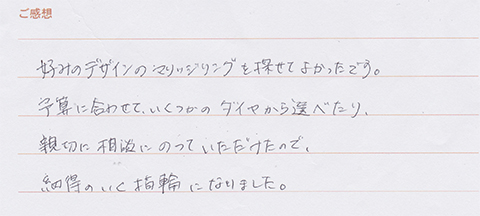 ご感想
好みのデザインのマリッジリングを探せてよかったです。
予算に合わせて、いくつかのダイヤから選べたり、
親切に相談にのっていただけたので、
納得のいく指輪になりました。